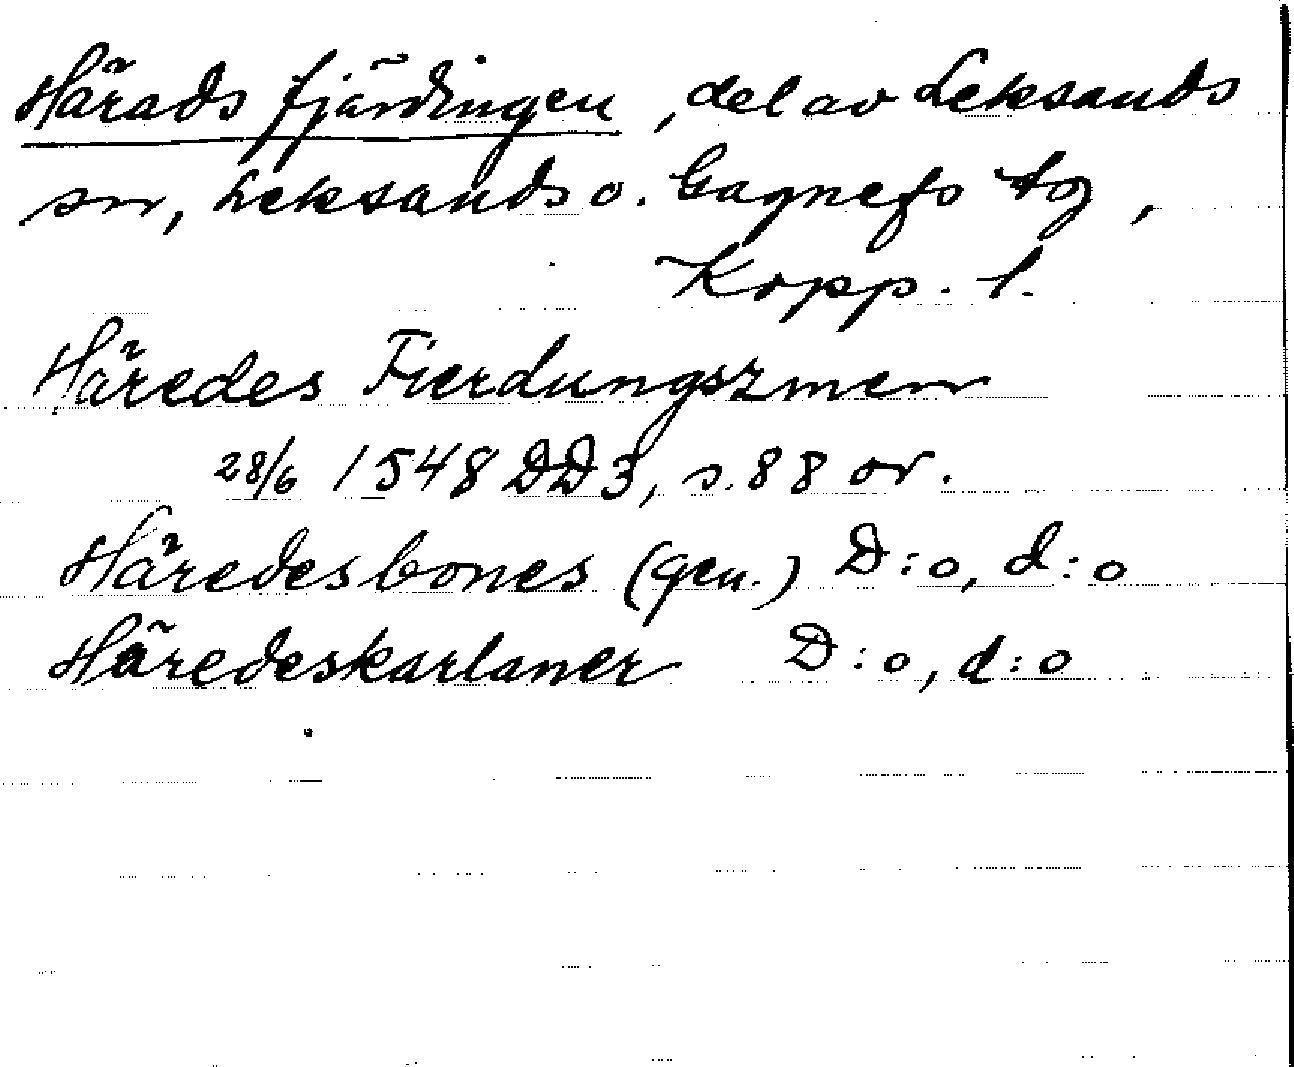 Härads fjärdingen, del av Leksands
sn, Leksands o. Gagnefs tg,
Kopp. l.
Häredes Fierdungszmenn
28/6 1548 DD3, s. 88 or.
Häredesbones (gen.) D:o, d:o
Häredeskarlaner D:o, d:o